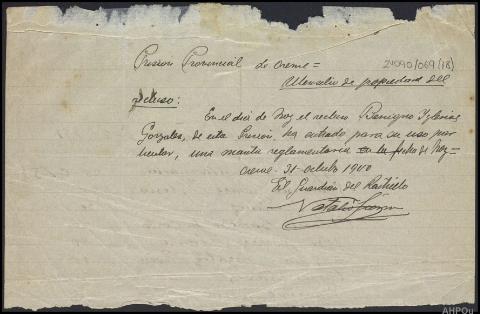 Prision Provincial de Orense=
24090/069/(18)
Utensilio de propiedad del
recluso:
En el dia de hoy el recluso Benigno Iglesias
Gonzalez, de esta Prision, ha entrado para su uso par
ticular, una manta reglamentaria en la fecha de hoy=
Orense 31 octubre 1940
El Guardian del Rastrillo
Natalio
AHPOu